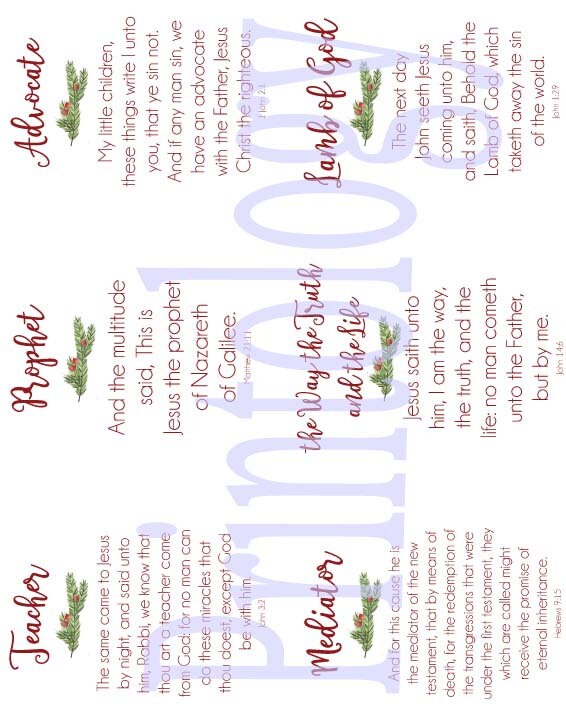 Teacher
The same came to Jesus
by night, and said unto
him, Rabbi, we know that
thou art a teacher come
from God: for no man can
do these miracles that
thou doest, except God
be with him.
John 3:2
Prophet
And the multitude
said, This is
Jesus the prophet
of Nazareth
of Galilee.
Matthew 21:11
Advocate
My little children,
these things write I unto
you, that ye sin not.
And if any man sin, we
have an advocate
with the Father, Jesus
Christ the righteous.
1 John 2:1
Mediator
And for this cause he is
the mediator of the new
testament, that by means of
death, for the redemption of
the transgressions that were
under the first testament, they
which are called might
receive the promise of
eternal inheritance.
Hebrews 9:15
the Way the Truth
and the Life
Jesus saith unto
him, I am the way,
the truth, and the
life: no man cometh
unto the Father,
but by me.
John 14:6
Lamb of God
The next day
John seeth Jesus
coming unto him,
and saith, Behold the
Lamb of God, which
taketh away the sin
of the world.
John 1:29
Printology